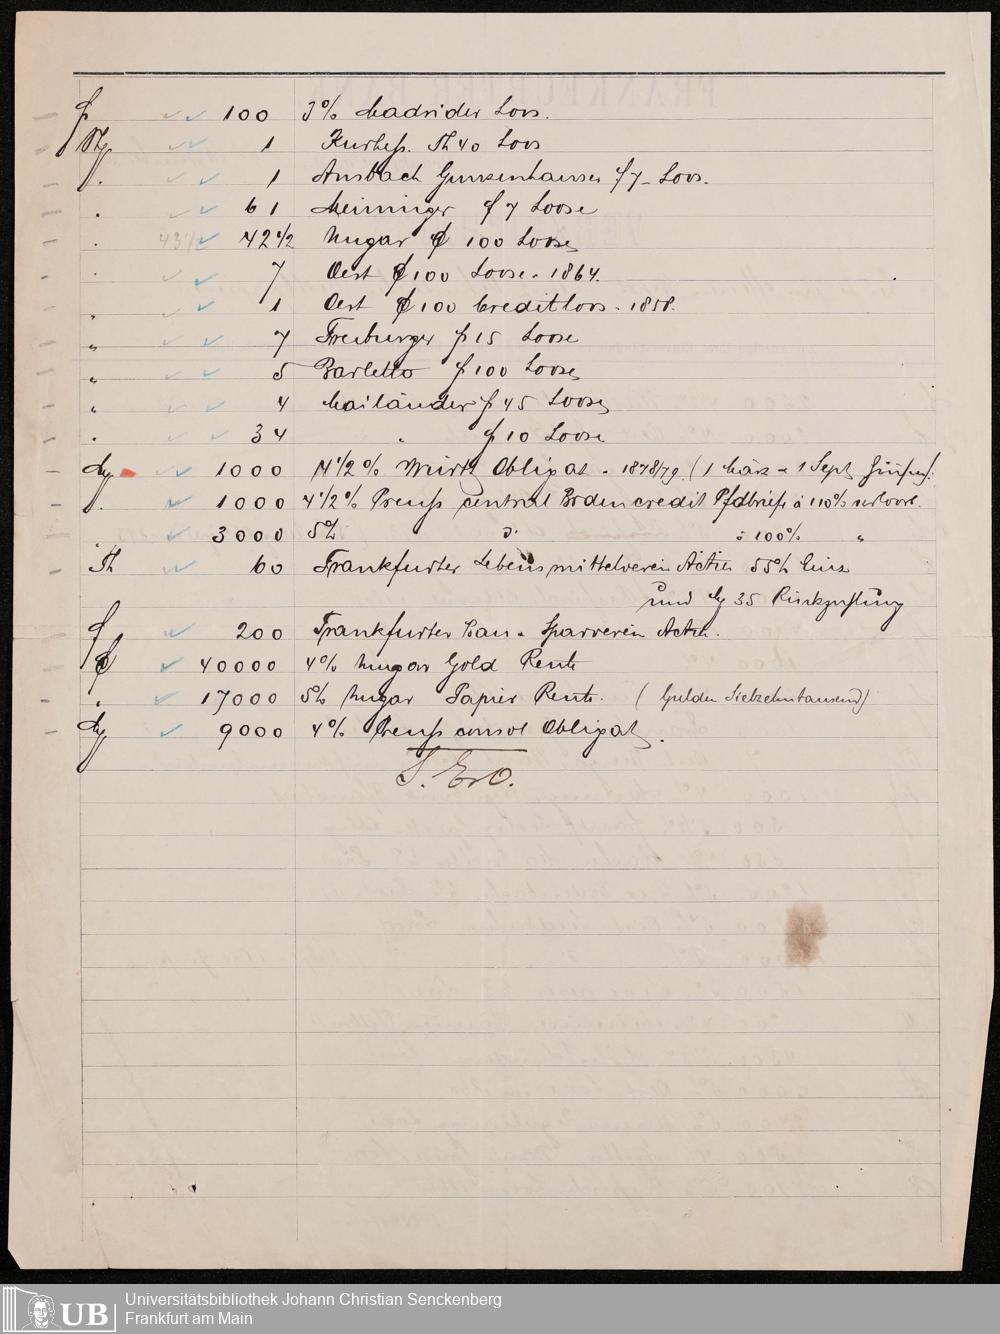 fr 100 3% Madrider Loos.
Stg 1 Kurhess. Th 40 Loos
" 1 Ansbach Gunzenhauser f 7 Loos.
" 61 Meininger f 7 Loose
" 42 1/2 Ungar fl 100 Loose
" 7 Oest fl 100 Loose. 1864.
" 1 Oest fl 100 Creditloos. 1858.
" 7 Freiburger fr 15 Loose
" 5 Barletta fr 100 Loose
" 4 Mailänder fr 45 Loose
" 34 " fr 10 Loose
M 1000 4 1/2% Württ Obligat. 1878/79. (1 März u 1 Sept Zinsen)
" 1000 4 1/2% Preuss central Bodencredit Pfdbriefe à 110% verloosb.
" 3000 5% do à 100% "
Th 60 Frankfurter Lebensmittelverein Actien 55% Einz
und M 35 Rückzahlung
f 200 Frankfurter Bau u Sparverein Actien.
fl 40000 4% Ungar Gold Rente
" 17000 5% Ungar Papier Rente. (Gulden Siebzehntausend)
M 9000 4% Preuss consol Obligat.
S. E. & O.
Universitätsbibliothek Johann Christian Senckenberg
Frankfurt am Main
UB